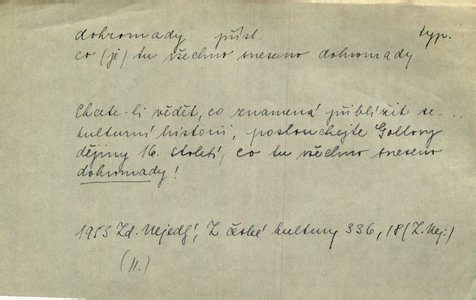 dohromady přísl. typ.
co (je) tu všechno sneseno dohromady
Chcete-li vědět, co znamená přiblížit se...
kulturní historii, poslouchejte Gollovy
dějiny 16. století, co tu všechno sneseno
dohromady!
1953 Zd. Nejedlý, Z české kultury 336, 18 (Z. Nej.)